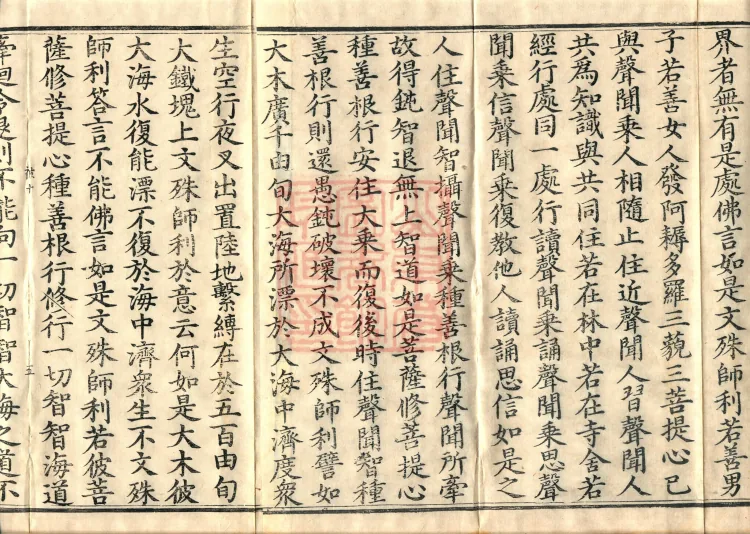 界者無有是處佛言如是文殊師利若善男
子若善女人發阿耨多羅三藐三菩提心已
與聲聞乘人相隨止住近聲聞人習聲聞人
共為知識與共同住若在林中若在寺舍若
經行處同一處行讀聲聞乘誦聲聞乘思聲
聞乘信聲聞乘復教他人讀誦思信如是之
人住聲聞智攝聲聞乘種善根行聲聞所牽
故得鈍智退無上智道如是菩薩修菩提心
種善根行安住大乘而復後時住聲聞智種
善根行則還愚鈍破壞不成文殊師利譬如
大木廣千由旬大海所漂於大海中濟度眾
生空行夜叉出置陸地繫縛在於五百由旬
大鐵塊上文殊師利於意云何如是大木彼
大海水復能漂不復於海中濟眾生不文殊
師利答言不能佛言如是文殊師利若彼菩
薩修菩提心種善根行修行一切智智海道
則不能向一切智智大海之道不